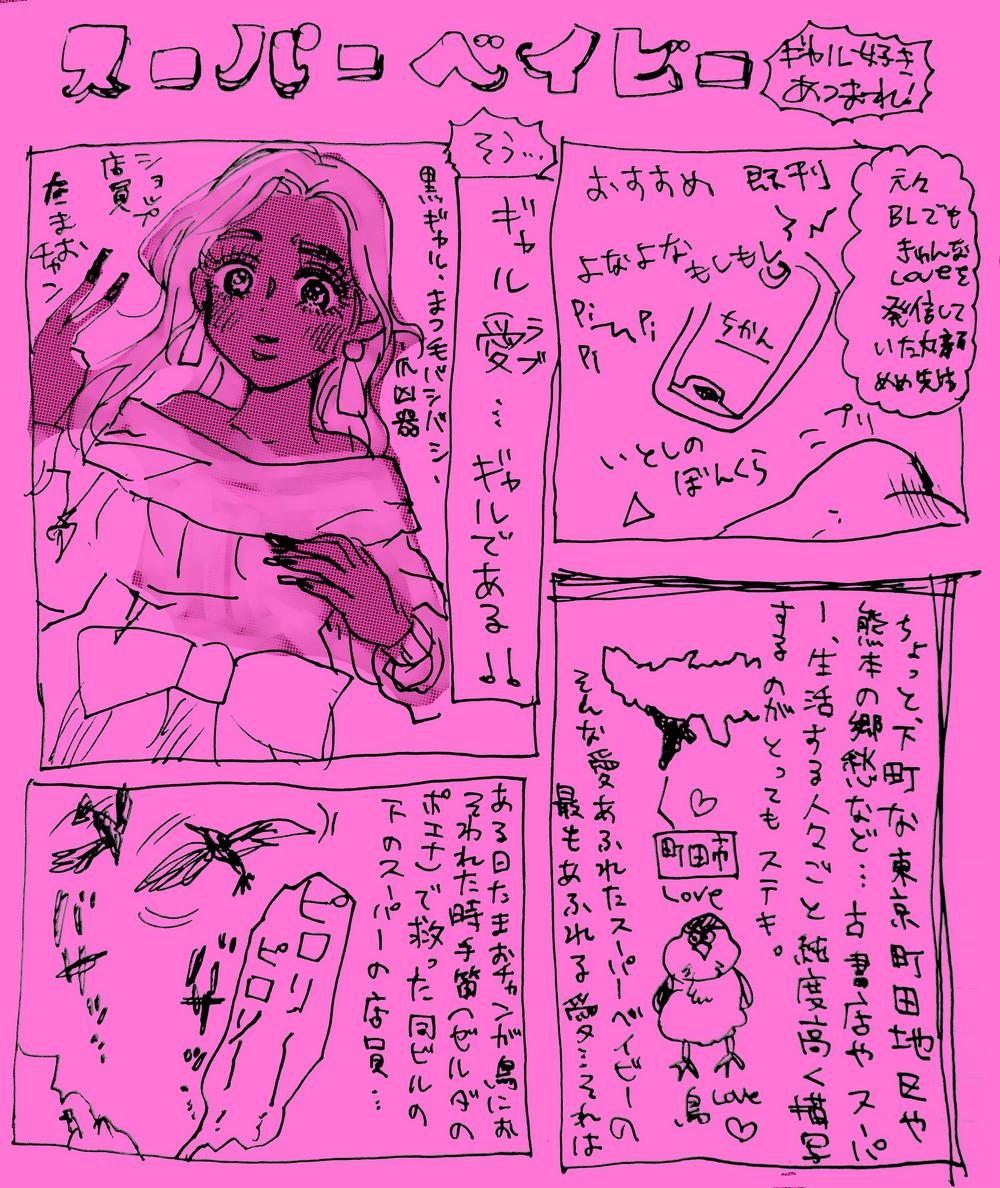 スーパーベイビー
ギャル好き
あつまーれ!
元々
BLでも
きゅんな
Loveを
発信して
いた丸顔
めめ先生
おすすめ 既刊
よなよなもしもし
Pi
Pi
Pi
ちかん
いとしの
ぼんくら
プリ
そう…
ギャル愛…ギャルである!!
ラブ
黒ギャル、まつ毛バシバシ、
爪凶器
ショップ
店員
たまお
チャン
ちょっと、下町な東京町田地区や
熊本の郷愁など…古書店やスーパ
ー、生活する人々ごと純度高く描写
するのがとってもステキ。
町田市
Love
鳥
Love
そんな愛あふれたスーパーベイビーの
最もあふれる愛…それは
ある日たまおチャンが鳥にお
そわれた時手笛(ゼルダの
ポエナ)で救った同ビルの
下のスーパーの店員…
ピロリ
ピロリ
バサ
バサ